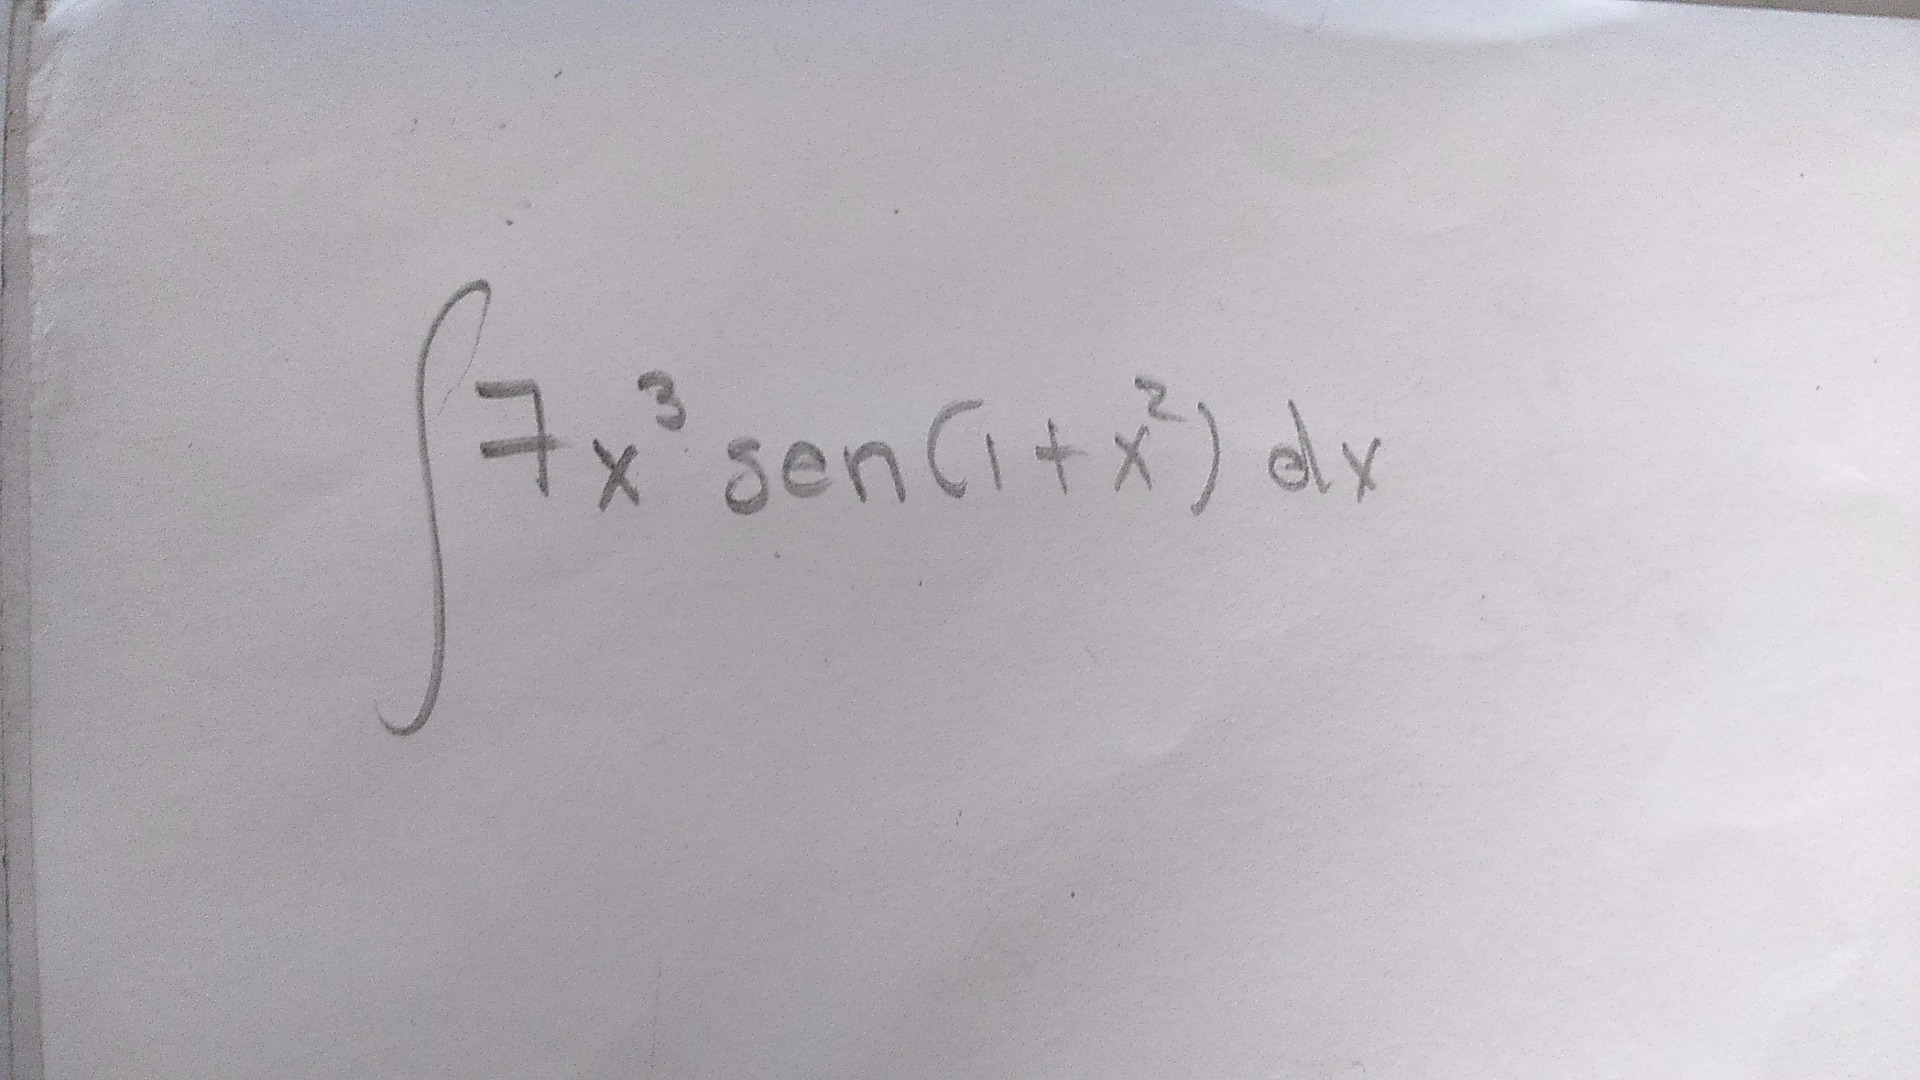 ∫7x³ sen(1+x²) dx